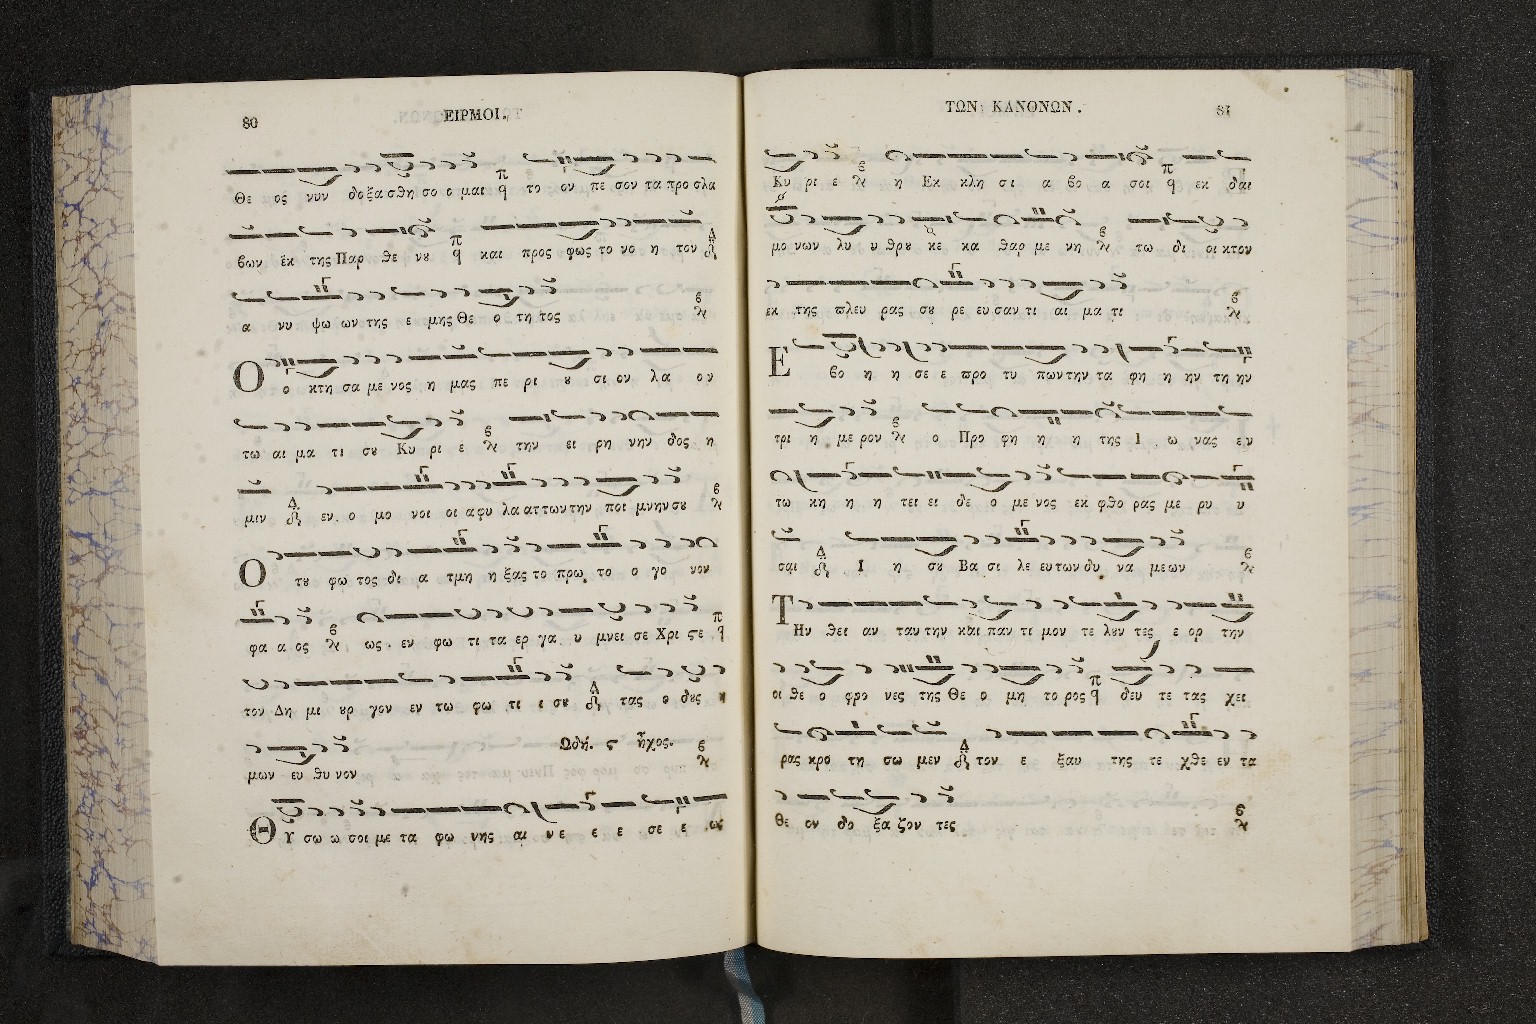 80
ΕΙΡΜΟΙ.
Θε ος νυν δοξασθη σο ο μαι το ον πε σον τα προσλα
βων ἐκ της Παρ θε νου και προς φως το νο η τον
α νυ ψω ων της ε μης Θε ο τη τος
Ο ο κτη σα με νος η μας πε ρι ȣ σι ον λα ον
τω αι μα τι σȣ Κυ ρι ε την ει ρη νην δος η
μιν εν ο μο νοι οι α φυ λα αττων την ποι μνην σȣ
Ο τȣ φω τος δι α τμη η ξας το πρω το ο γο νον
φα α ος ως εν φω τι τα ερ γα υ μνει σε Χρι ϛε
τον Δη μι ȣρ γον εν τω φω τι ι σȣ τας ο δȣς η
Ωδή. ϛ ἦχος.
μων ευ θυ νον
Θ Υ σω ω σοι με τα φω νης αι νε ε ε σε ε ως
ΤΩΝ ΚΑΝΟΝΩΝ.
81
Κυ ρι ε η Εκ κλη σι α βο α σοι εκ δαι
μο νων λυ υ θρȣ κε κα θαρ με νη τω δι οι κτον
εκ της πλευ ρας σȣ ρε ευ σαν τι αι μα τι
Ε βο η η σε ε προ τυ πων την τα φη η ην τη ην
τρι η με ρον ο Προ φη η η της Ι ω νας εν
τω κη η η τει ει δε ο με νος εκ φθο ρας με ρυ υ
σαι Ι η σȣ Βα σι λε ευ των δυ να με ων
Τ Ην θει αν ταυ την και παν τι μον τε λȣν τες ε ορ την
οι θε ο φρο νες της Θε ο μη το ρος δευ τε τας χει
ρας κρο τη σω μεν τον ε ξαυ της τε χθε εν τα
Θε ον δο ξα ζον τες